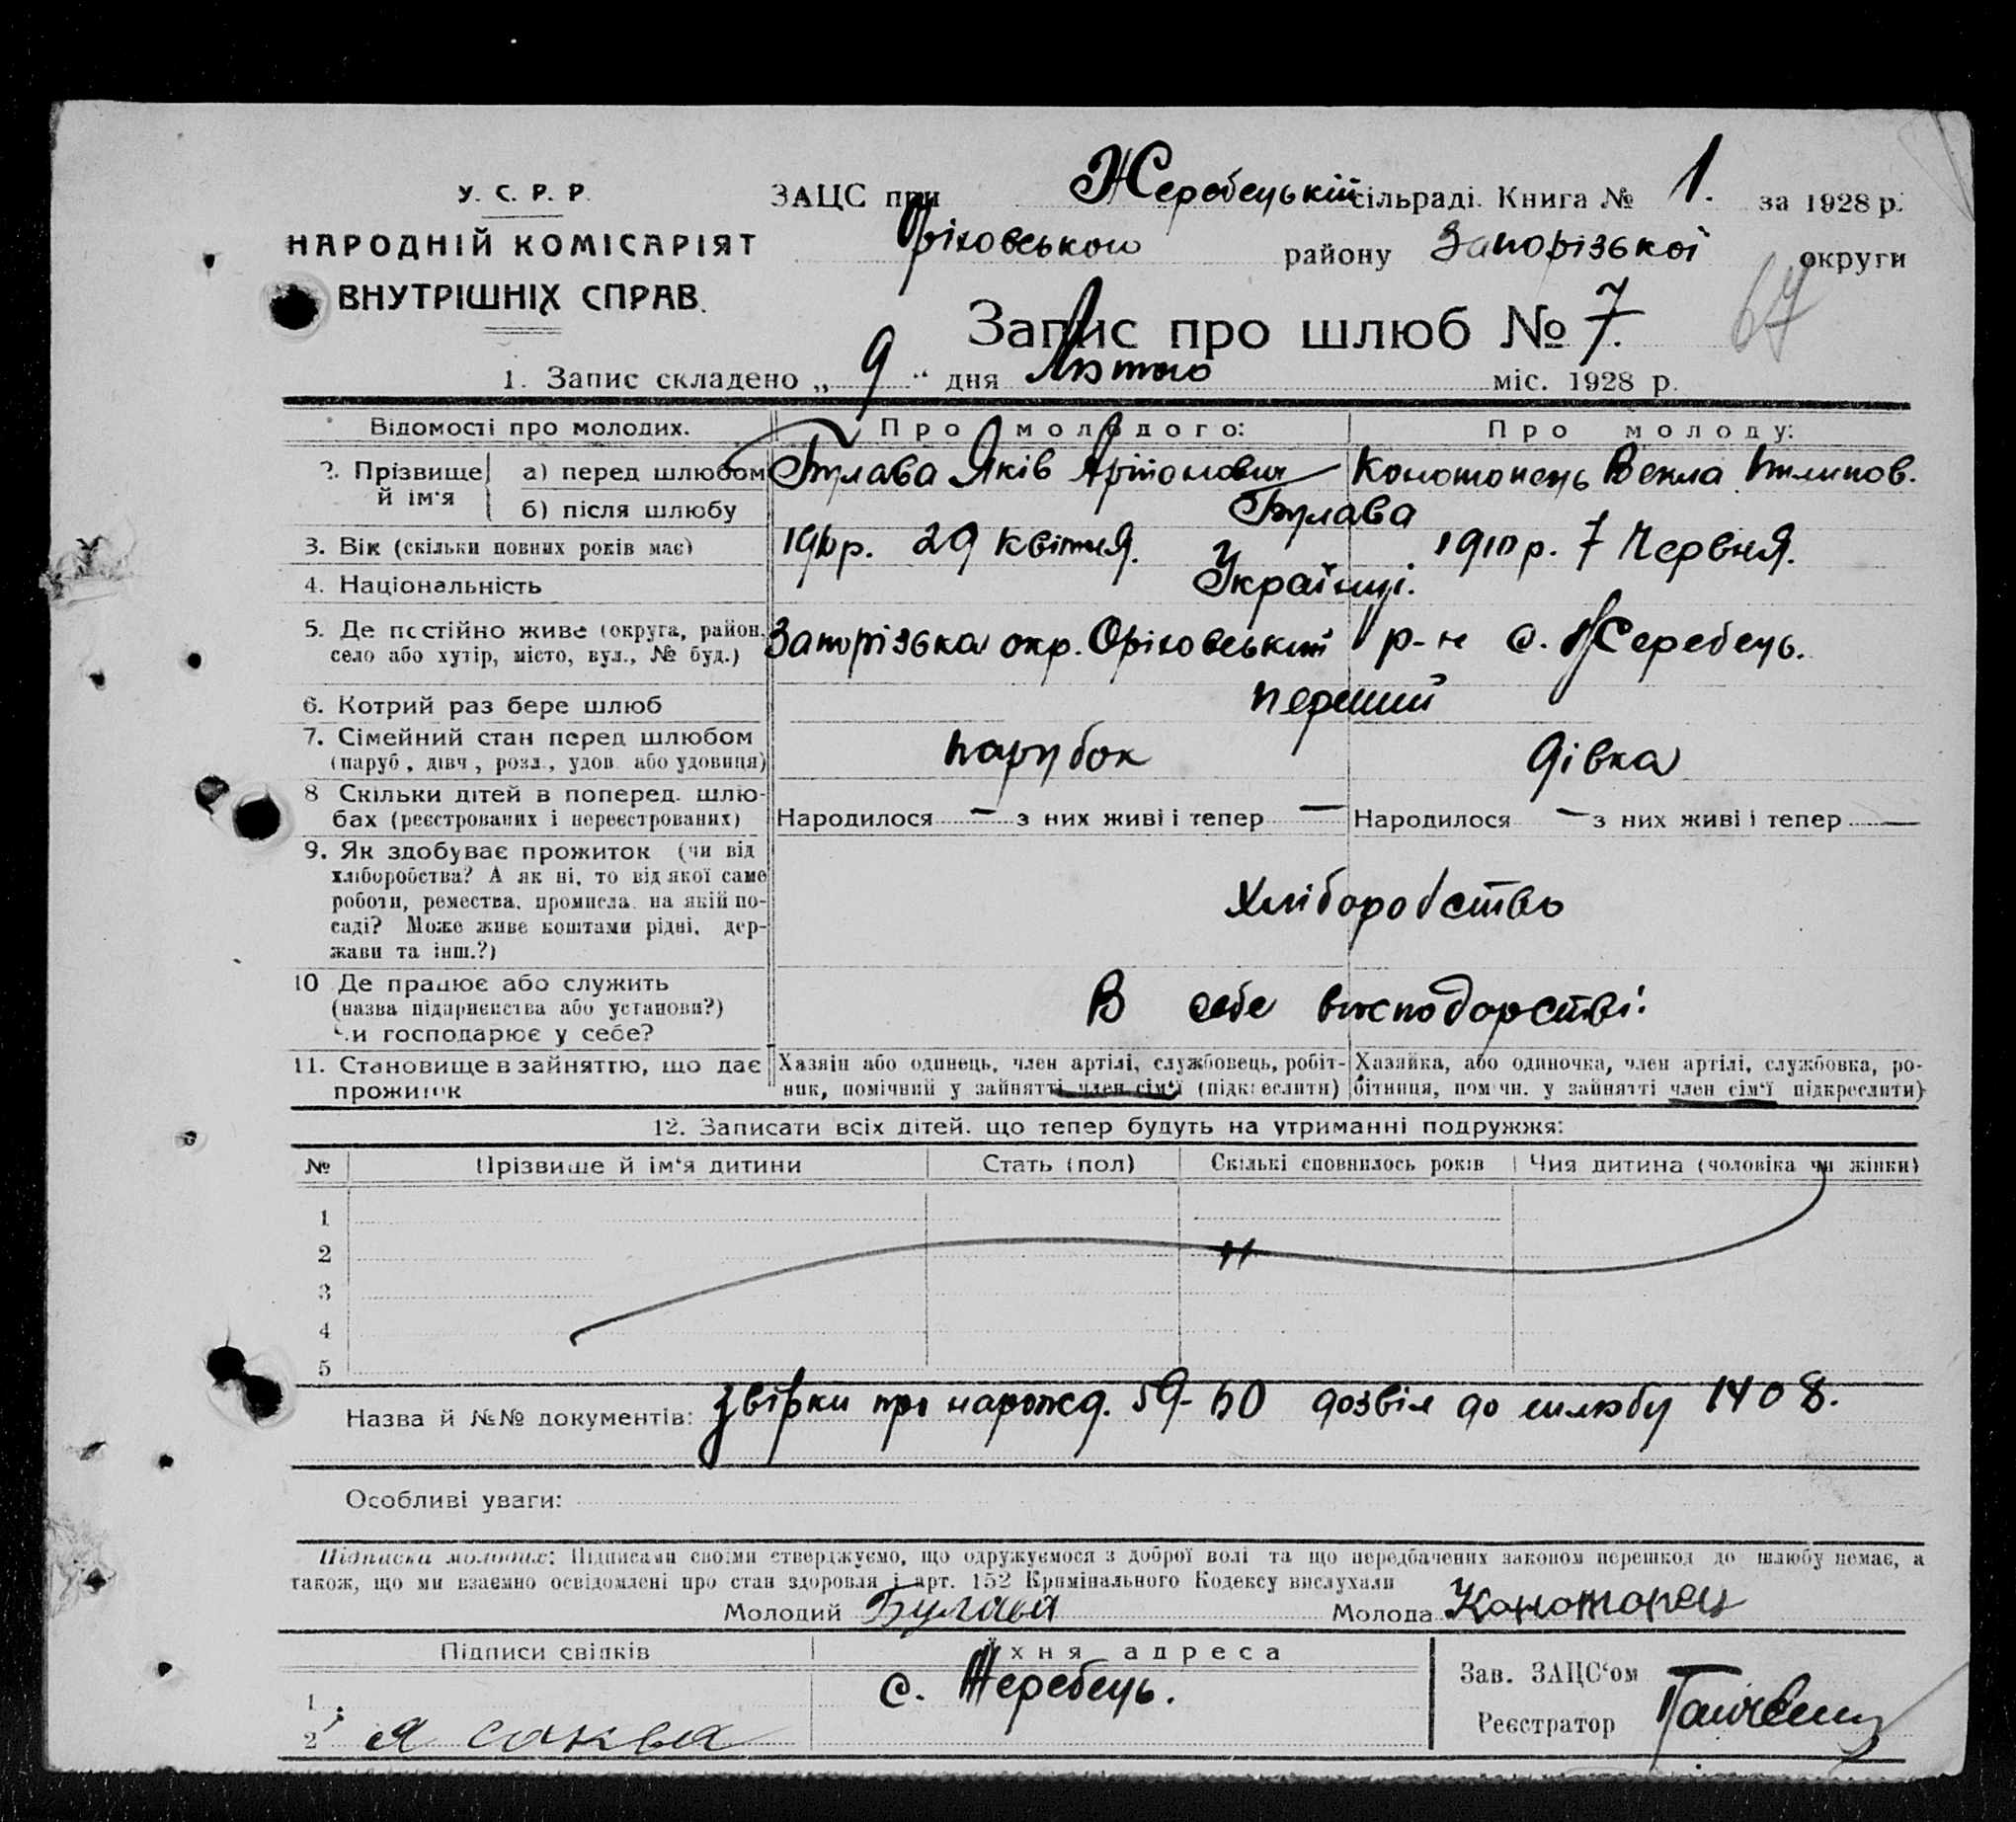 У. С. Р. Р.
НАРОДНІЙ КОМІСАРІЯТ
ВНУТРІШНІХ СПРАВ.
ЗАЦС при Жеребецькій сільраді. Книга № 1. за 1928 р.
Оріховського району Запорізької округи
67
Запис про шлюб № 7.
1. Запис складено „ 9 “ дня Лютого міс. 1928 р.
Відомості про молодих. Про молодого: Про молоду:
2. Прізвище й ім‘я а) перед шлюбом Булава Яків Конотопець Векла
б) після шлюбу Булава
3. Вік (скільки повних років має) 29 Квітня. 1910 р. 7 Червня.
4. Національність Українці.
5. Де постійно живе (округа, район, село або хутір, місто, вул., № буд.) Запорізька окр. Оріховський р-н с. Жеребець.
6. Котрий раз бере шлюб перший
7. Сімейний стан перед шлюбом (паруб., дівч., розл., удов. або удовиця) парубок дівка
8 Скільки дітей в поперед. шлюбах (реєстрованих і нереєстрованих) Народилося — з них живі і тепер — Народилося — з них живі і тепер —
9. Як здобуває прожиток (чи від
хліборобства? А як ні, то від якої саме
роботи, ремества, промисла, на якій по-
саді? Може живе коштами рідні, дер-
жави та інш.?)
Хліборобство
10 Де працює або служить
(назва підприємства або установи?)
Чи господарює у себе?
В себе в господарстві.
11. Становище в зайняттю, що дає прожиток
Хазяін або одинець, член артілі, службовець, робіт-
ник, помічний у зайнятті член сім‘ї (підкреслити)
Хазяйка, або одиночка, член артілі, службовка, ро-
бітниця, помічн. у зайнятті член сім‘ї підкреслити)
12. Записати всіх дітей, що тепер будуть на утриманні подружжя:
№ Прізвище й ім‘я дитини Стать (пол) Скількі сповнилось років Чия дитина (чоловіка чи жінки)
1
2
3
4
5
Назва й №№ документів: про нарожд. дозвіл до шлюбу 1408.
Особливі уваги:
Підписка молодих: Підписами своїми стверджуємо, що одружуємося з доброї волі та що передбачених законом перешкод до шлюбу немає, а
також, що ми взаємно освідомлені про стан здоровля і арт. 152 Кримінального Кодексу вислухали
Молодий Булава Молода Конотопец
Підписи свідків Їхня адреса
1 с. Жеребець.
2
Зав. ЗАЦС‘ом
Реєстратор